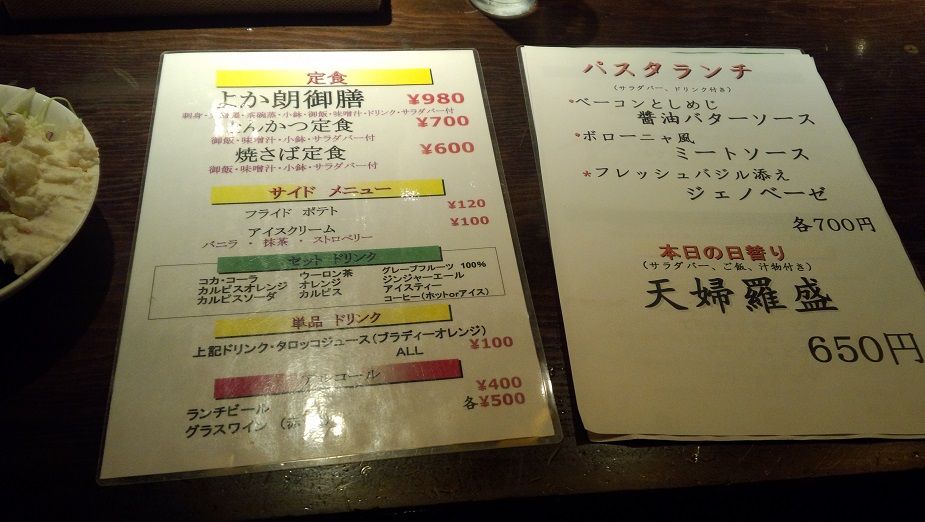 定食
よか朗御膳 ¥980
刺身・ ・茶碗蒸・小鉢・御飯・味噌汁・ドリンク・サラダバー付
とんかつ定食 ¥700
御飯・味噌汁・小鉢・サラダバー付
焼さば定食 ¥600
御飯・味噌汁・小鉢・サラダバー付
サイド メニュー
フライド ポテト ¥120
アイスクリーム ¥100
バニラ ・ 抹茶 ・ ストロベリー
セット ドリンク
コカ・コーラ ウーロン茶 グレープフルーツ 100%
カルピスオレンジ オレンジ ジンジャーエール
カルピスソーダ カルピス アイスティー
コーヒー(ホットorアイス)
単品 ドリンク
上記ドリンク・タロッコジュース(ブラディーオレンジ)
ALL ¥100
アルコール
ランチビール ¥400
グラスワイン 各¥500
パスタランチ
(サラダバー、ドリンク付き)
*ベーコンとしめじ
醬油バターソース
*ボローニャ風
ミートソース
*フレッシュバジル添え
ジェノベーゼ
各700円
本日の日替り
(サラダバー、ご飯、汁物付き)
天婦羅盛
650円